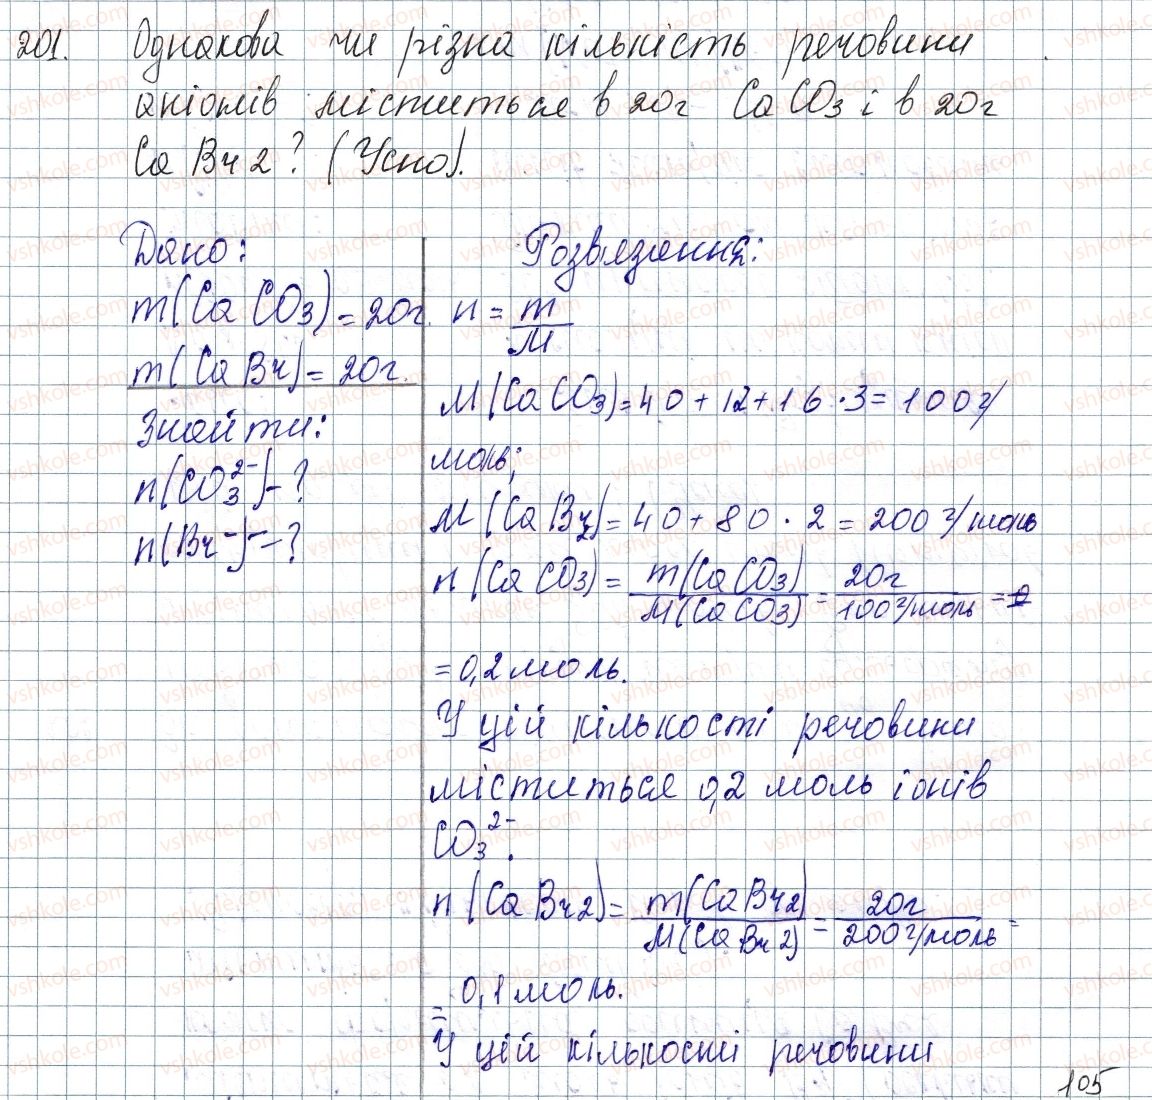 201. Однакова чи різна кількість речовини
аніонів міститься в 20г CaCO3 і в 20г
CaBr2? (Усно).
Дано:
m(CaCO3)=20г.
m(CaBr)=20г.
Знайти:
n(CO3^2-)-?
n(Br-)-?
Розв'язання:
n = m/M
M(CaCO3)=40+12+16·3=100г/
моль;
M(CaBr2)=40+80·2=200г/моль
n(CaCO3)= m(CaCO3)/M(CaCO3) = 20г/100г/моль =
=0,2моль.
У цій кількості речовини
міститься 0,2 моль іонів
CO3^2-.
n(CaBr2)= m(CaBr2)/M(CaBr2) = 20г/200г/моль =
= 0,1моль.
У цій кількості речовини
105
vshkole.com